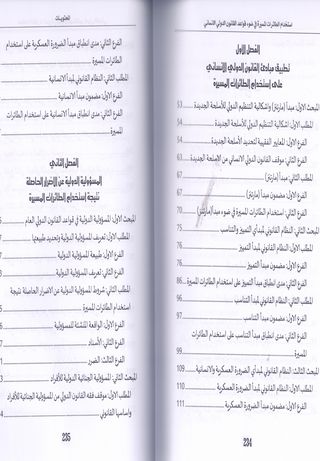 استخدام الطائرات المسيرة في ضوء قواعد القانون الدولي الانساني
الفصل الاول
تطبيق مبادئ القانون الدولي الإنساني
على إستخدام الطائرات المسيرة
المبحث الأول: مبدأ (مارتنز) وإشكالية التنظيم الدولي للأسلحة الجديدة 53
المطلب الاول: اشكالية التنظيم الدولي للأسلحة الجديدة 54
الفرع الأول: المعايير الفقهية لتحديد الأسلحة الجديدة
الفرع الثاني: موقف القانون الدولي الانساني من الاسلحة الجديدة 60
المطلب الثاني: النظام القانوني لمبدأ (مارتنز) 67
الفرع الأول: مضمون مبدأ (مارتنز) 67
الفرع الثاني: استخدام الطائرات المسيرة في ضوء مبدأ (مارتنز) 70
المبحث الثاني: النظام القانوني لمبدأي التمييز والتناسب 75
المطلب الأول: النظام القانوني لمبدأ التمييز 76
الفرع الاول: مضمون مبدأ التمييز 76
الفرع الثاني: مدى انطباق مبدأ التمييز على استخدام الطائرات المسيرة 86
المطلب الثاني: النظام القانوني لمبدأ التناسب 96
الفرع الأول: مضمون مبدأ التناسب 97
الفرع الثاني: مدى انطباق مبدأ التناسب على استخدام الطائرات
المسيرة 99
المبحث الثالث: النظام القانوني لمبدأي الضرورة العسكرية والانسانية 109
المطلب الأول: النظام القانوني لمبدأ الضرورة العسكرية 110
الفرع الأول: مضمون مبدأ الضرورة العسكرية 111
234
المحتويات
الفرع الثاني: مدى انطباق مبدأ الضرورة العسكرية على استخدام
الطائرات المسيرة
المطلب الثاني: النظام القانوني لمبدأ الانسانية
الفرع الأول: مضمون مبدأ الانسانية
الفرع الثاني: مدى انطباق مبدأ الانسانية على استخدام الطائرات
المسيرة
الفصل الثاني
المسؤولية الدولية عن الاضرار الحاصلة
نتيجة إستخدام الطائرات المسيرة
المبحث الاول: المسؤولية الدولية في قواعد القانون الدولي العام
المطلب الأول: تعريف المسؤولية الدولية وتحديد طبيعتها
الفرع الأول: طبيعة المسؤولية الدولية
الفرع الثاني: تعريف المسؤولية الدولية
المطلب الثاني: شروط المسؤولية الدولية عن الاضرار الحاصلة نتيجة
استخدام الطائرات المسيرة
الفرع الاول: الواقعة المنشئة للمسؤولية
الفرع الثاني: الأسناد
الفرع الثالث: الضرر
المبحث الثاني: المسؤولية الجنائية الدولية للأفراد
المطلب الأول: موقف فقه القانون الدولي من المسؤولية الجنائية للأفراد
واساسها القانوني
235